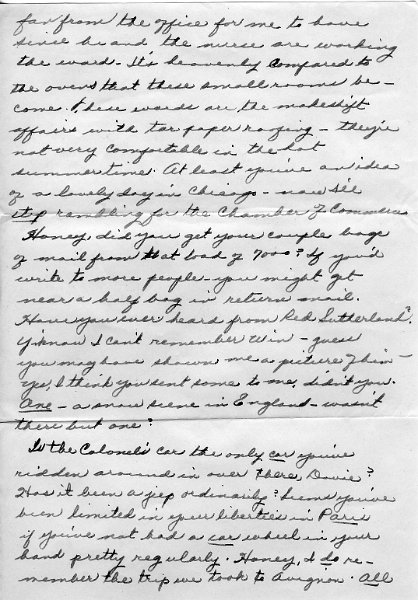 far from the office for me to have
since he and the nurse are working
the ward - It's heavenly compared to
the ovens that these small rooms be-
come. These wards are the makeshift
affairs with tar paper roofing - they're
not very comfortable in the hot
summertime. At least you've an idea
of a lovely day in Chicago - now I'll
stop rambling for the Chamber of Commerce
Honey, did you get your couple bags
of mail from that load of 7000? If you'd
write to more people - you might get
near a half bag in return mail.
Have you ever heard from Red Sutherland?
Y'know I can't remember Win - guess
you may have shown me a picture of him -
yes, I think you sent some to me, didn't you.
One - a snow scene in England - wasn't
there but one?
Is the Colonel's car the only car you've
ridden around in over there, Davie?
Has it been a jeep ordinarily? Seems you've
been limited in your liberties in Paris
if you've not had a car wheel in your
hand pretty regularly. Honey, I do re-
member the trip we took to Avignon. All